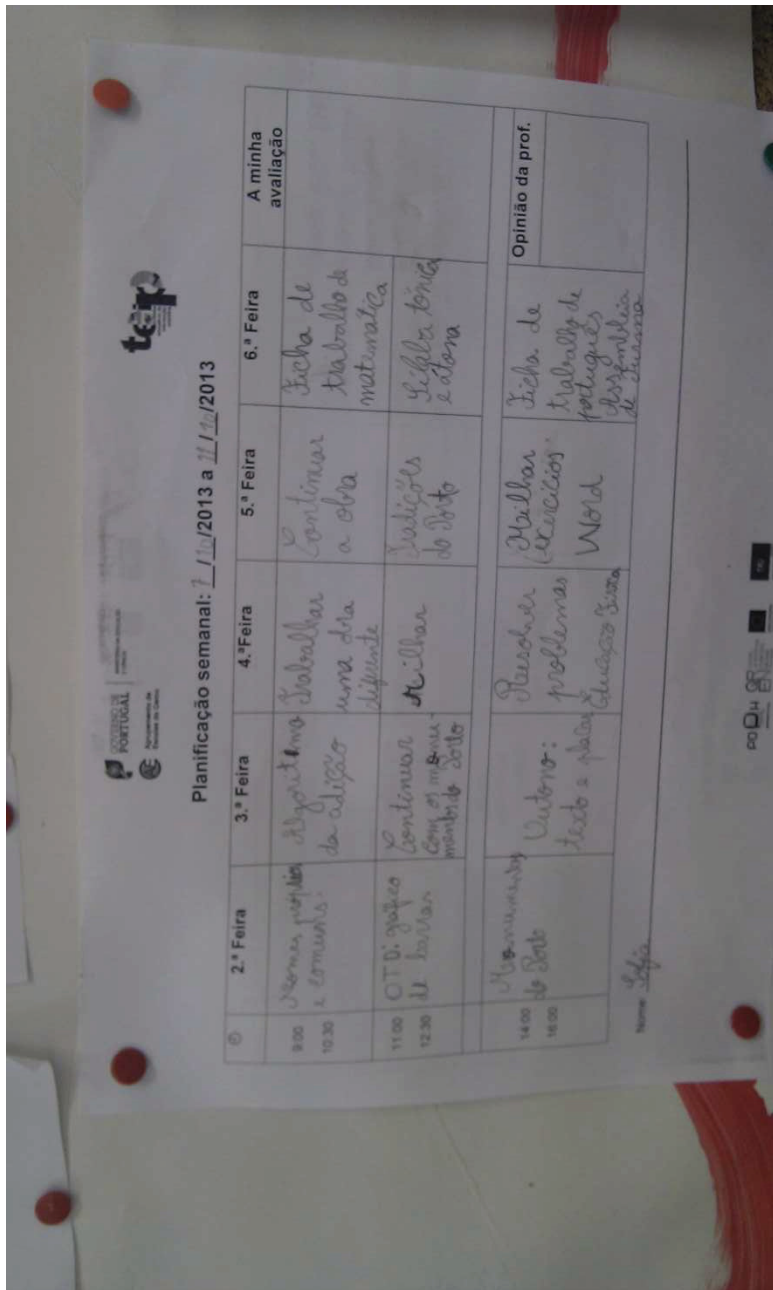 GOVERNO DE
PORTUGAL
Agrupamento de
Escolas do Cerco
teip
Planificação semanal: 7 / 10 /2013 a 11 / 10 /2013
2.ª Feira
3.ª Feira
4.ªFeira
5.ª Feira
6.ª Feira
A minha
avaliação
9:00
10:30
Nomes próprios
e comuns.
Algoritmo
da adição
Trabalhar
uma obra
diferente
Continuar
a obra
Ficha de
trabalho de
matemática
11:00
12:30
OTD: gráfico
de barras
Continuar
com os monu-
mentos do Porto
Milhar
Tradições
do Porto
Sílaba tónica
e átona
14:00
16:00
Monumentos
do Porto
Outono:
texto e placard
Resolver
problemas
Educação Física
Milhar
(exercícios.
Word
Ficha de
trabalho de
português
Assembleia
de turma
Opinião da prof.
Nome: Sofia
POPH
QR
EN